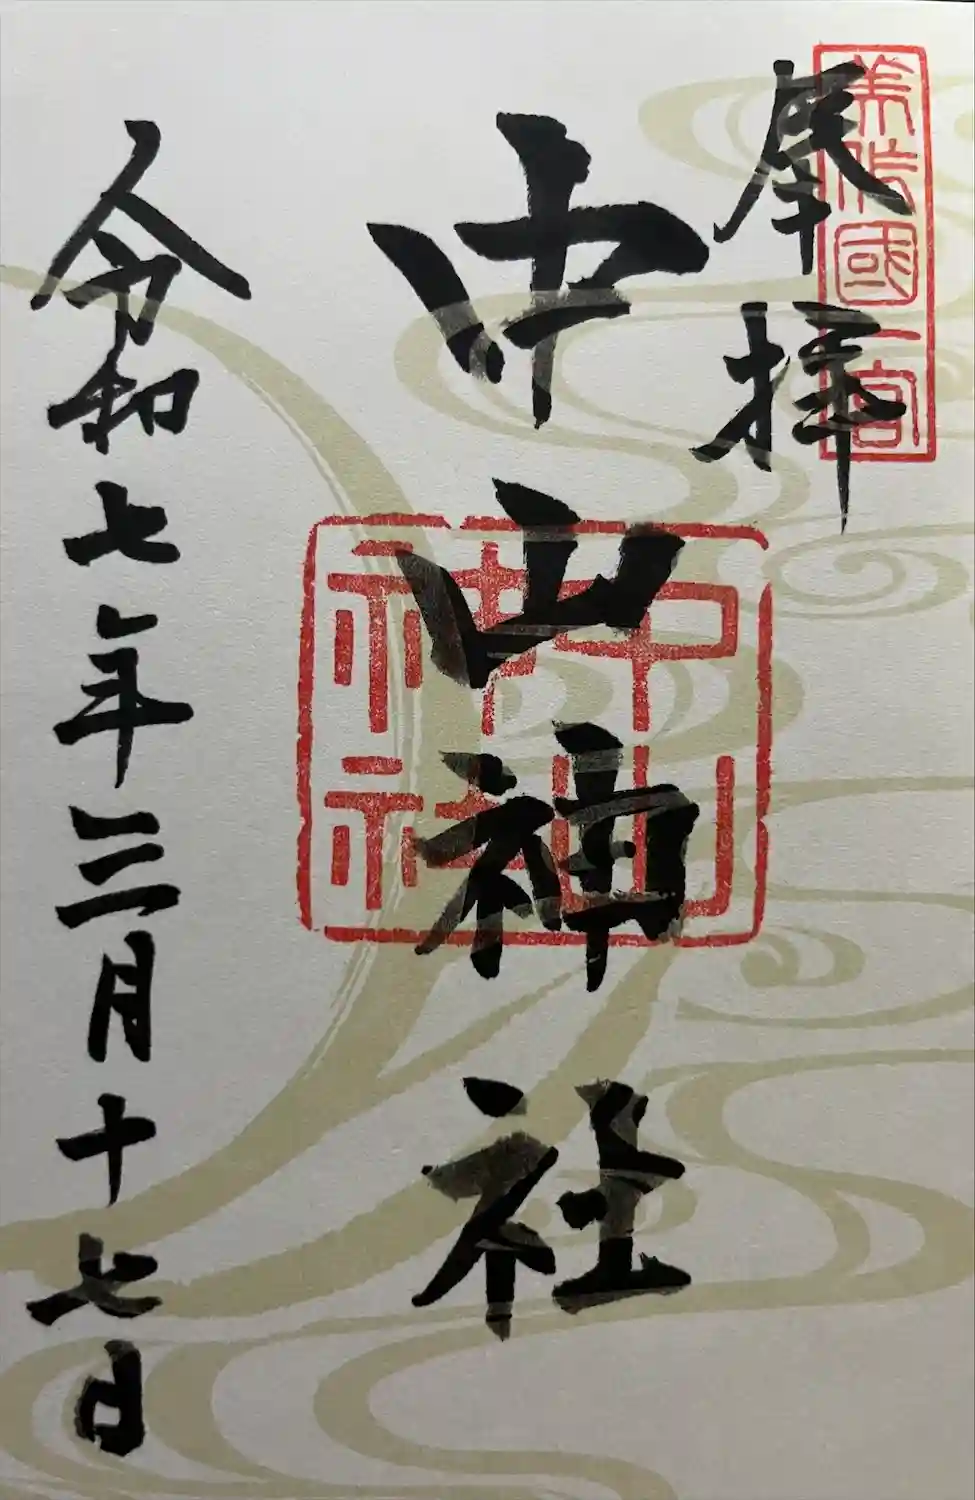 奉拝
美作國一宮
中山神社
中山神社
令和七年三月十七日